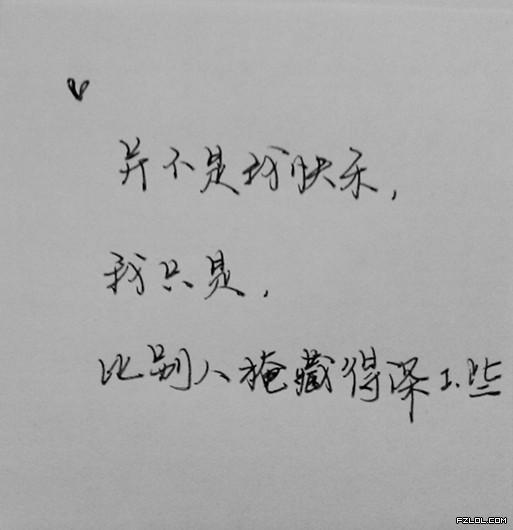 并不是我快乐，
我只是，
比别人掩藏得深一些
FZLOL.COM